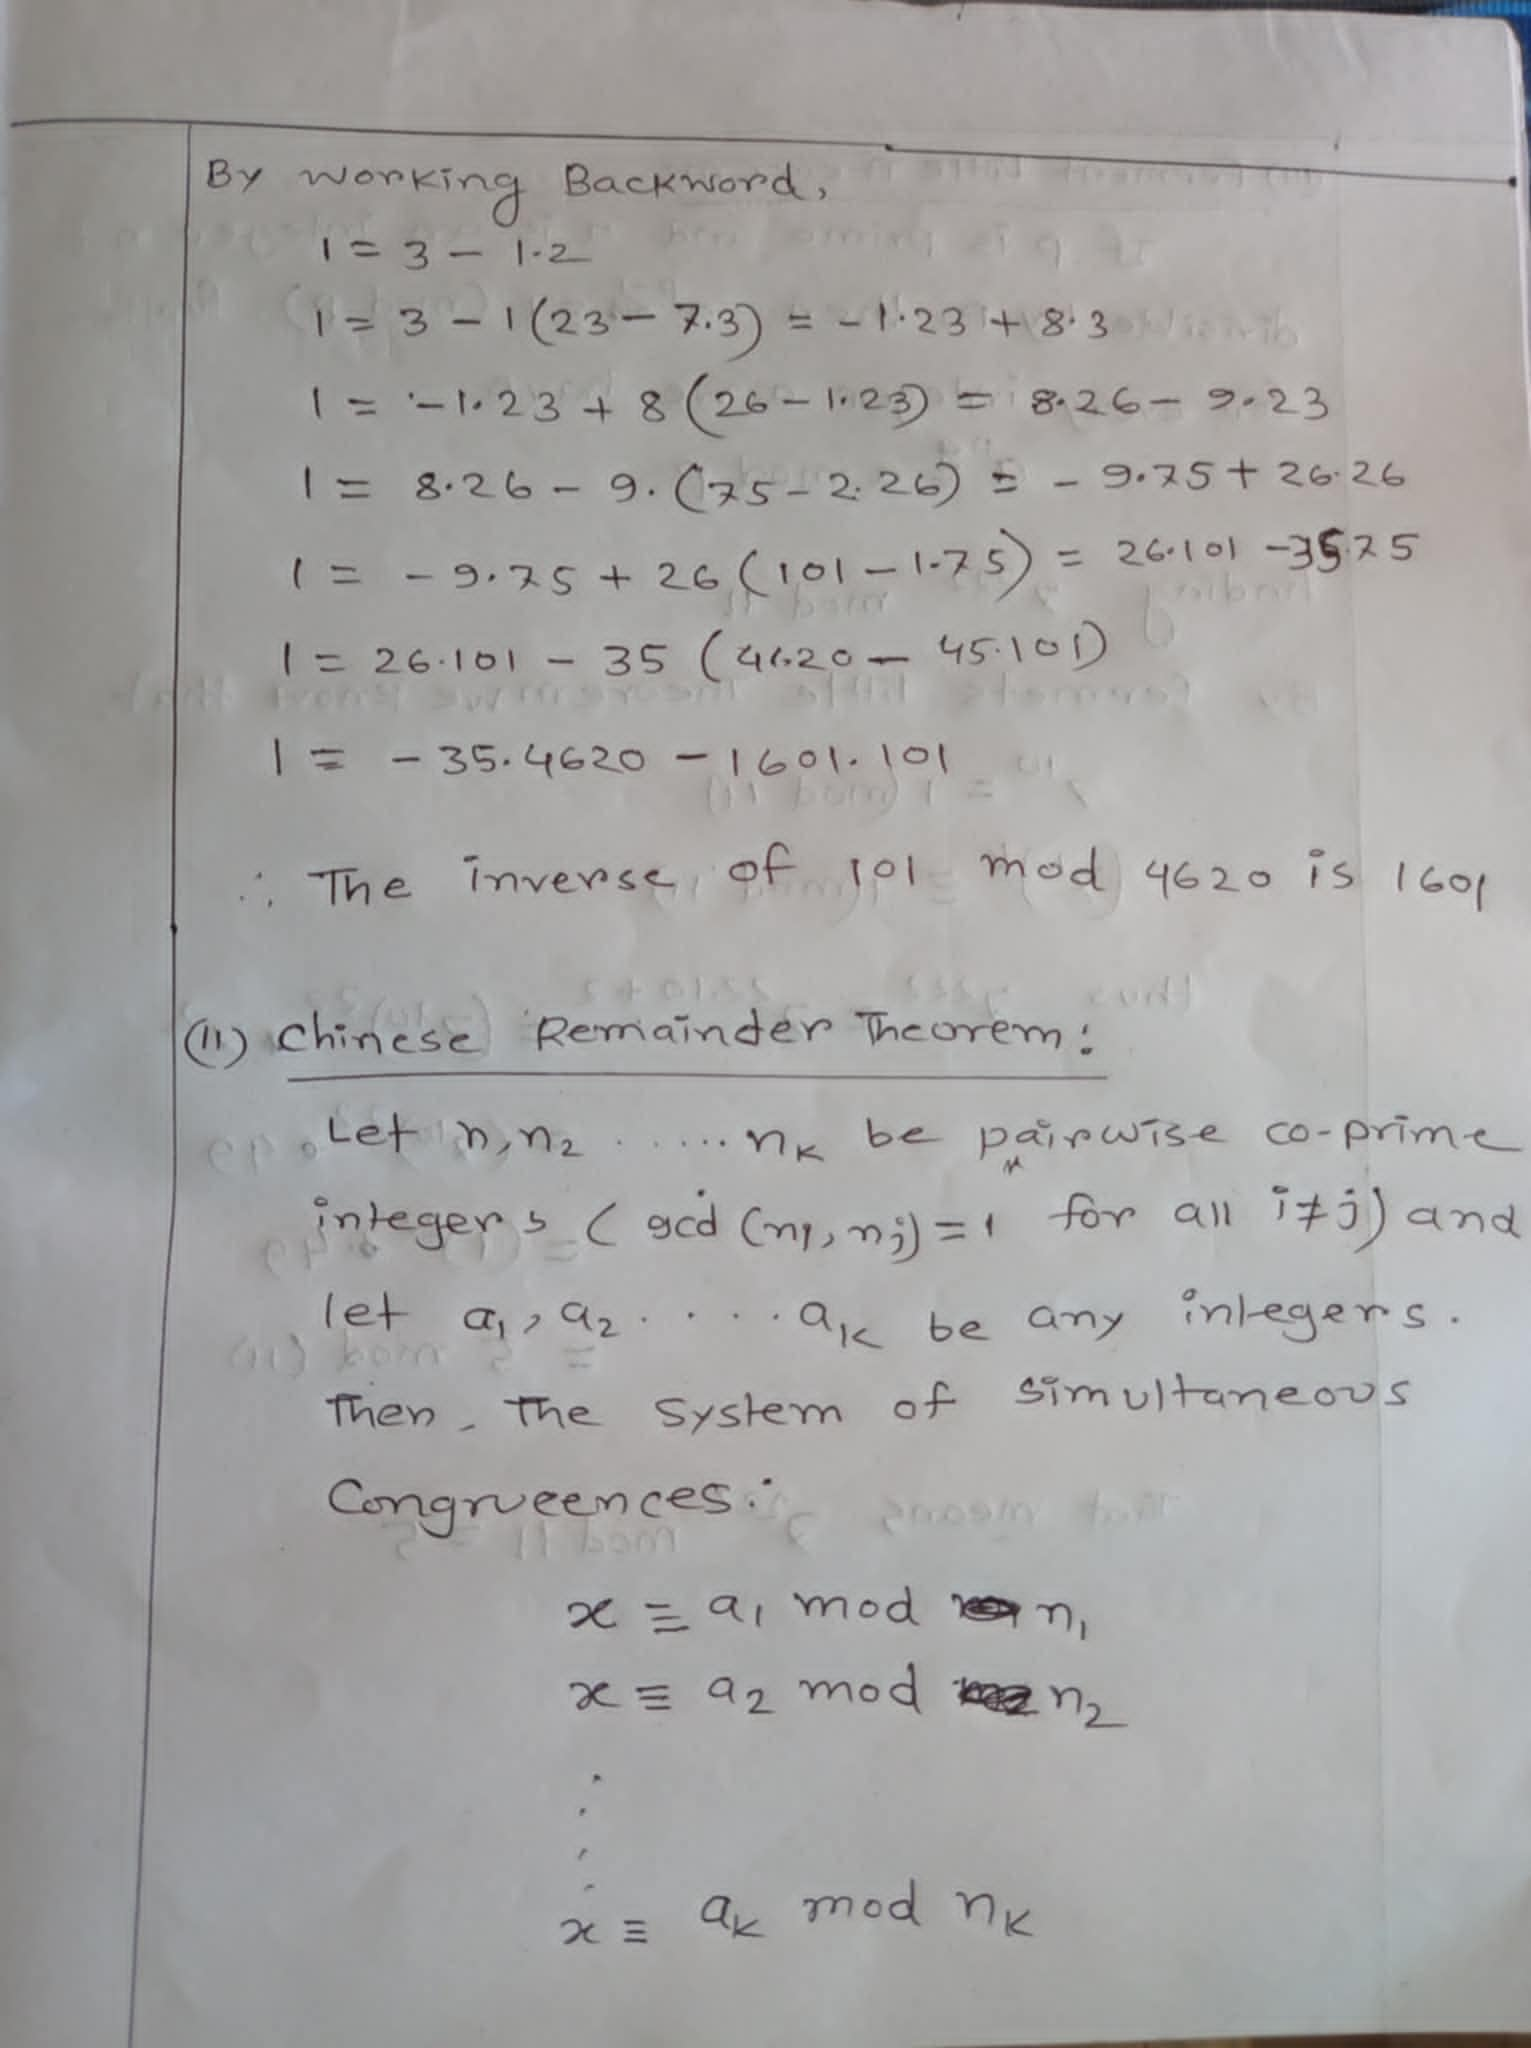 By working Backword,
1 = 3 - 1.2
1 = 3 - 1(23 - 7.3) = -1.23 + 8.3
1 = -1.23 + 8(26 - 1.23) = 8.26 - 9.23
1 = 8.26 - 9.(75 - 2.26) = -9.75 + 26.26
1 = -9.75 + 26(101 - 1.75) = 26.101 - 35.75
1 = 26.101 - 35(4620 - 45.101)
1 = -35.4620 - 1601.101
∴ The inverse of 101 mod 4620 is 1601
(11) Chinese Remainder Theorem:
Let n, n₂ ...... nₖ be pairwise co-prime
integers (gcd (n₁, nⱼ) = 1 for all i≠j) and
let a₁, a₂ .... aₖ be any integers.
Then, The system of simultaneous
Congrueences:
x ≡ a₁ mod n₁
x ≡ a₂ mod n₂
.
.
.
.
x ≡ aₖ mod nₖ